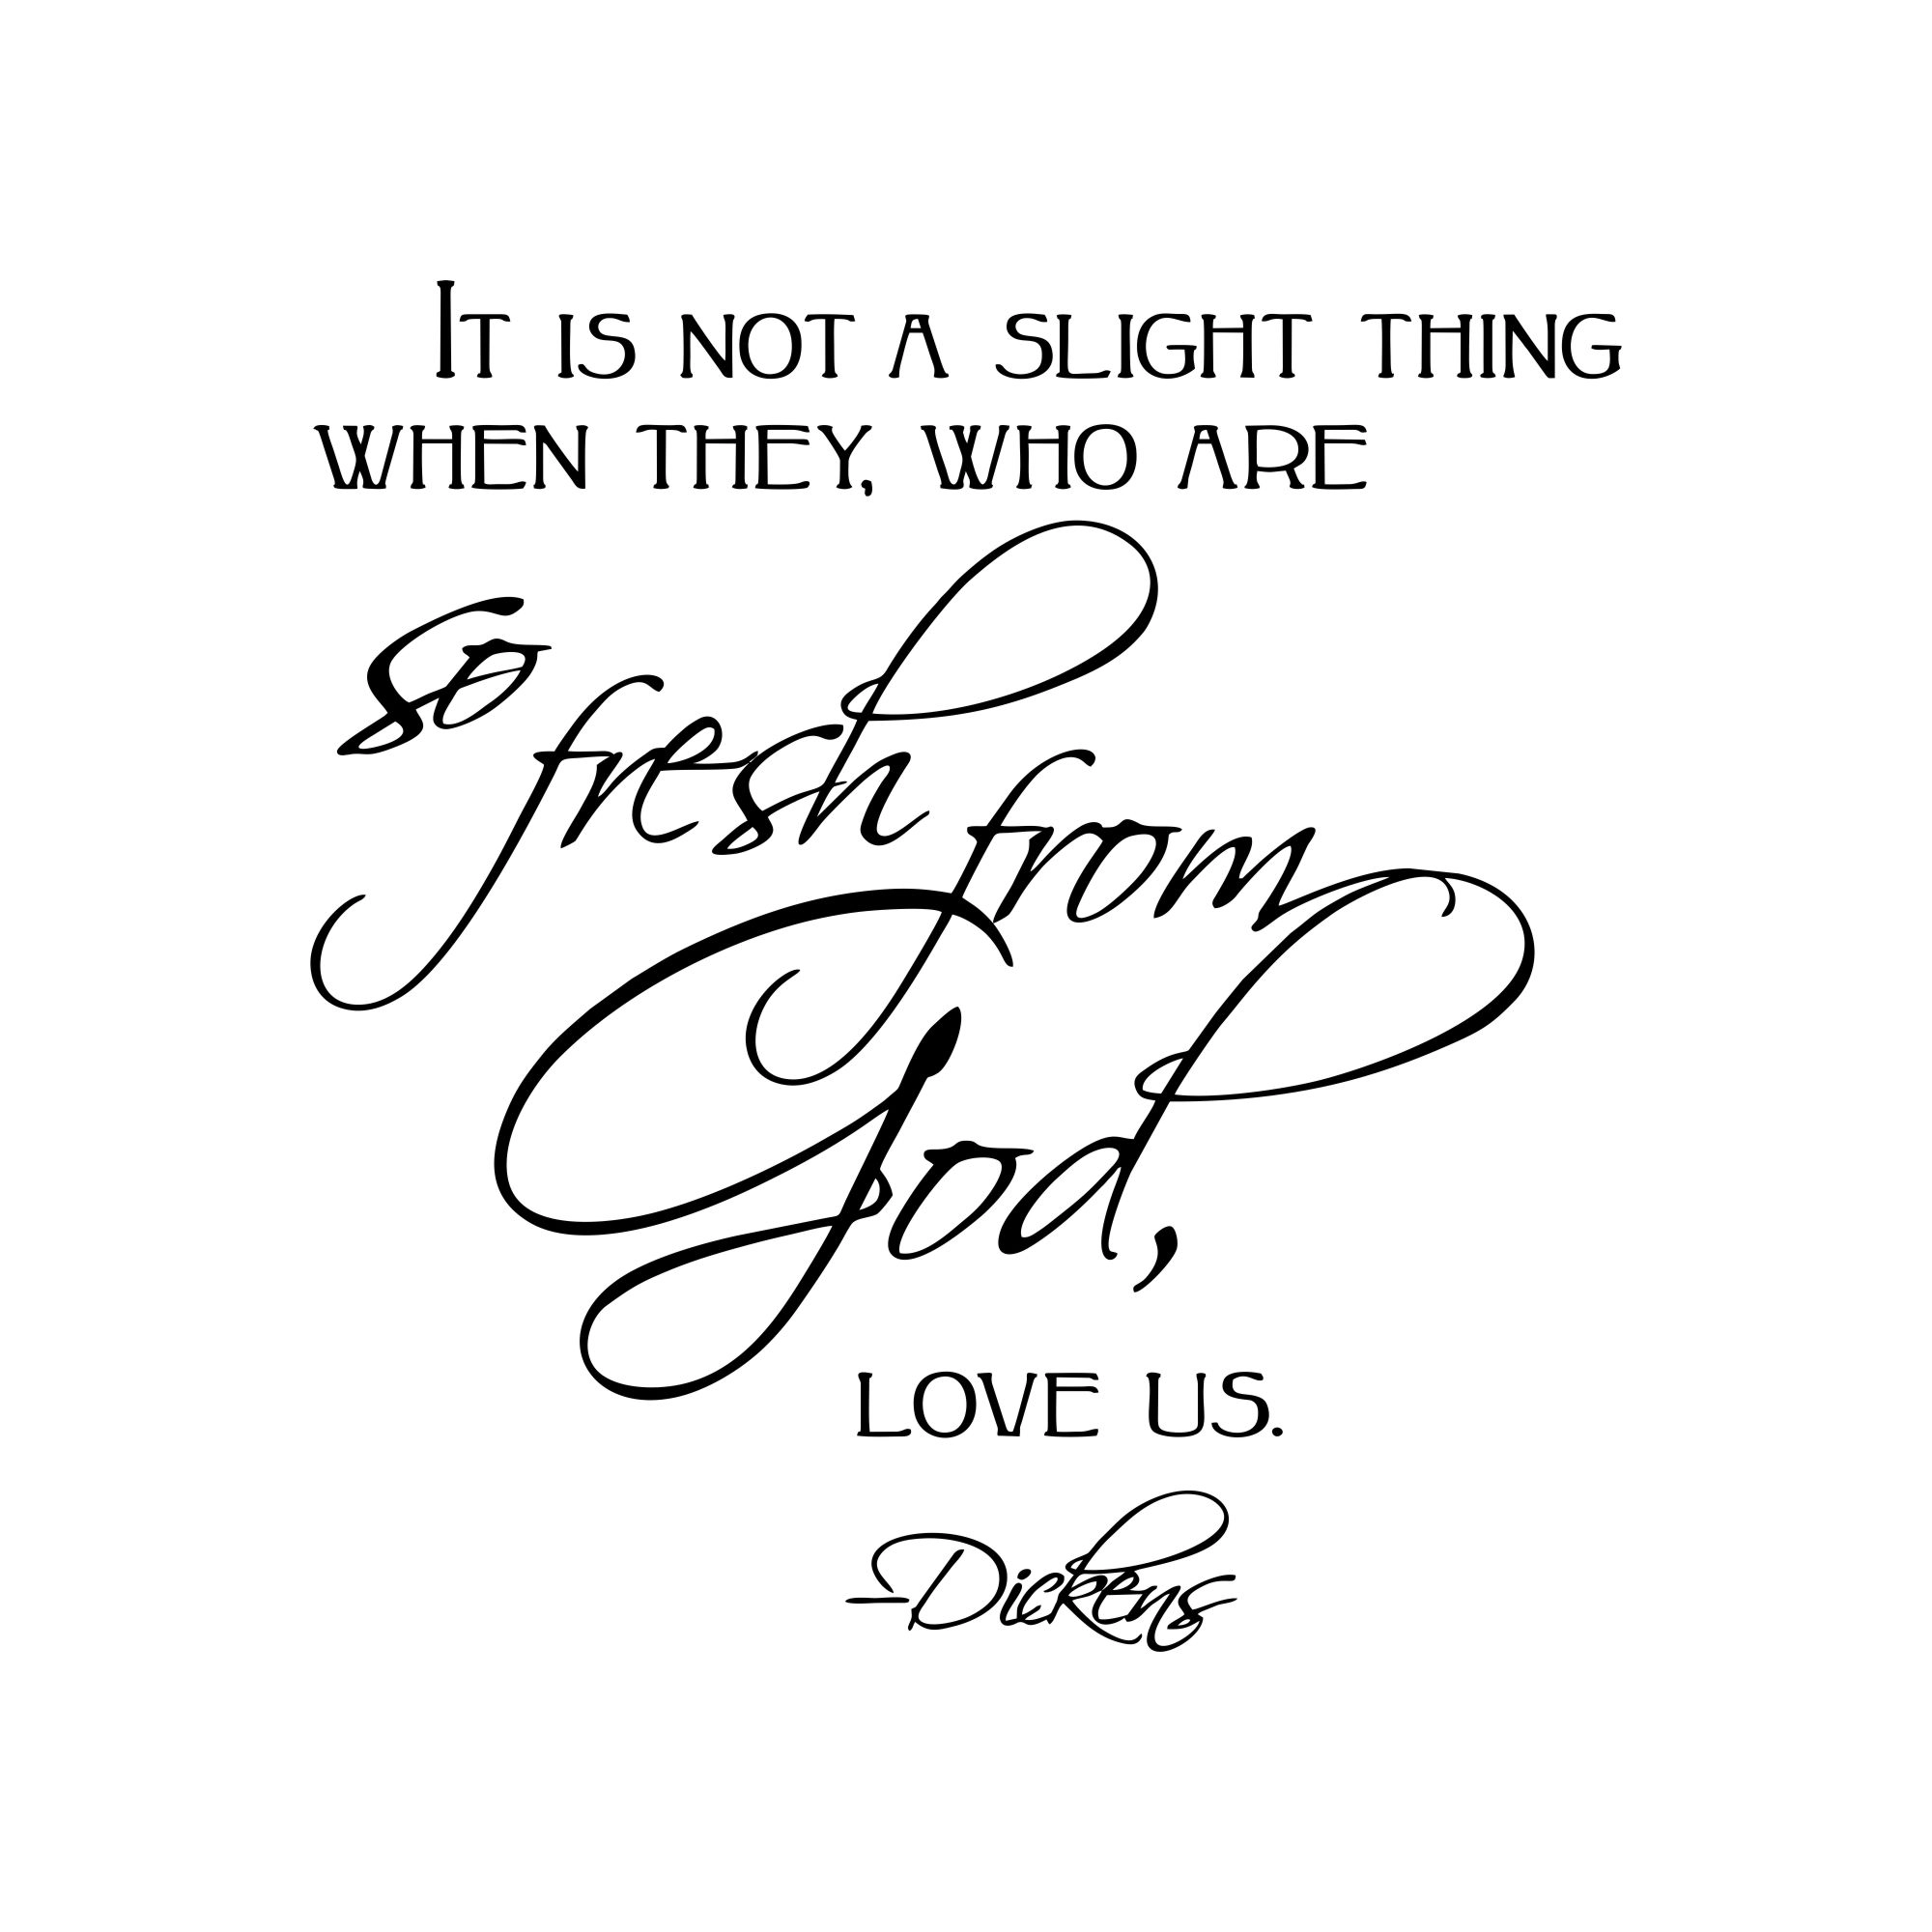 It is not a slight thing
when they, who are
So
fresh
from
God,
love us.
-Dickens